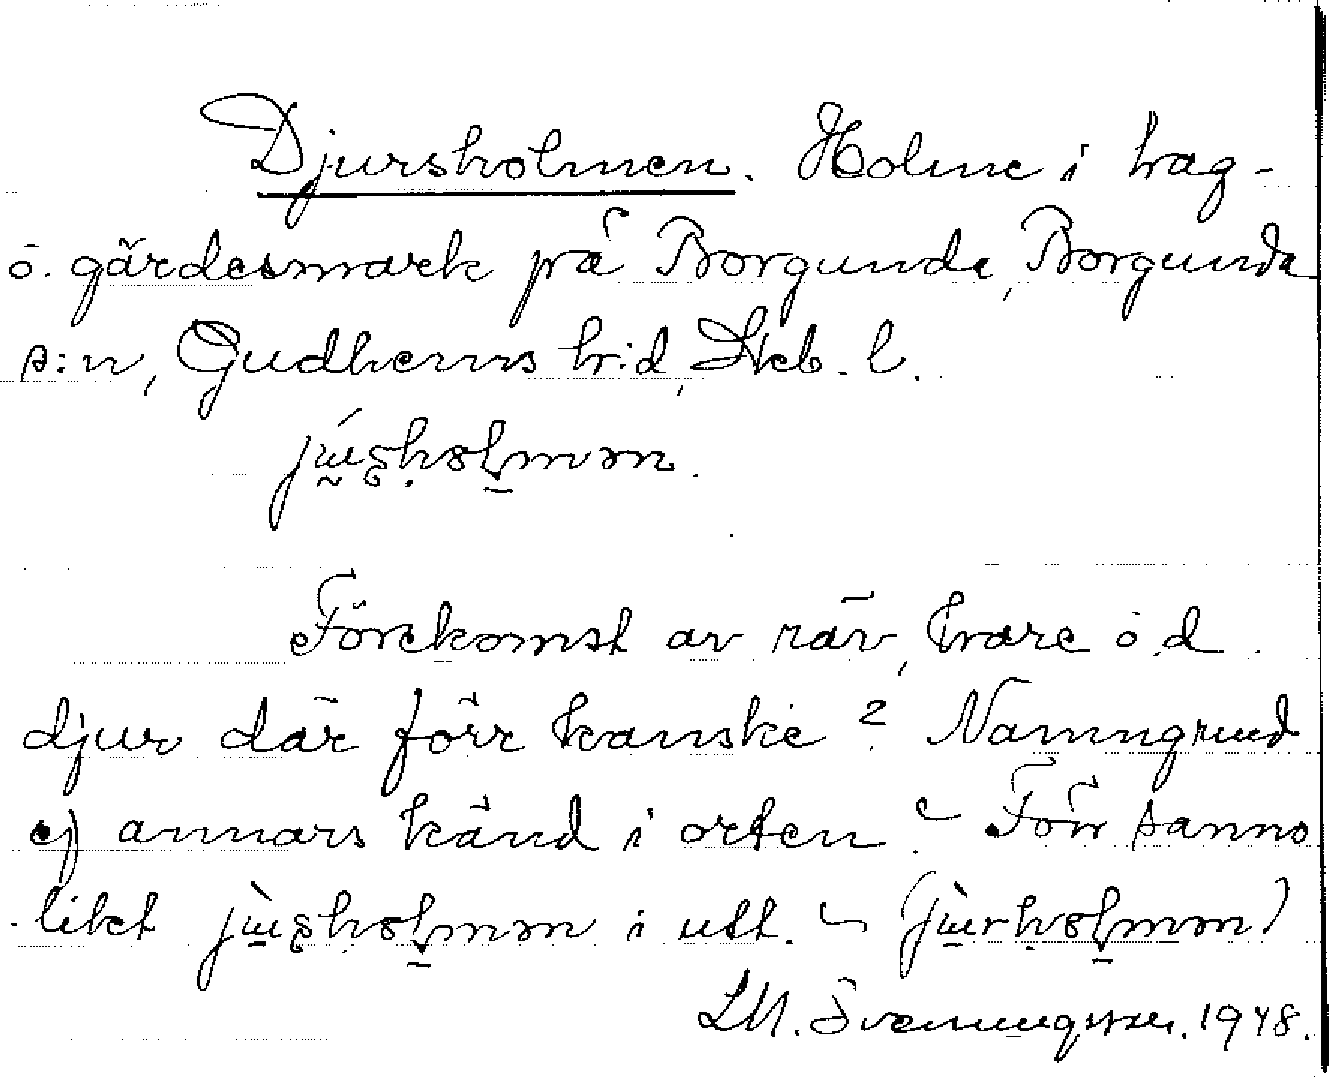 Djursholmen. Holme i hag-
o. gärdesmark på Borgunda, Borgunda
s:n, Gudhems h:d, Skb. l.
Förekomst av räv, hare o d
djur där förr kanske? Namngrund
ej annars känd i orten. - Förr sanno
likt i utt.
LM. Svenungsson. 1948.